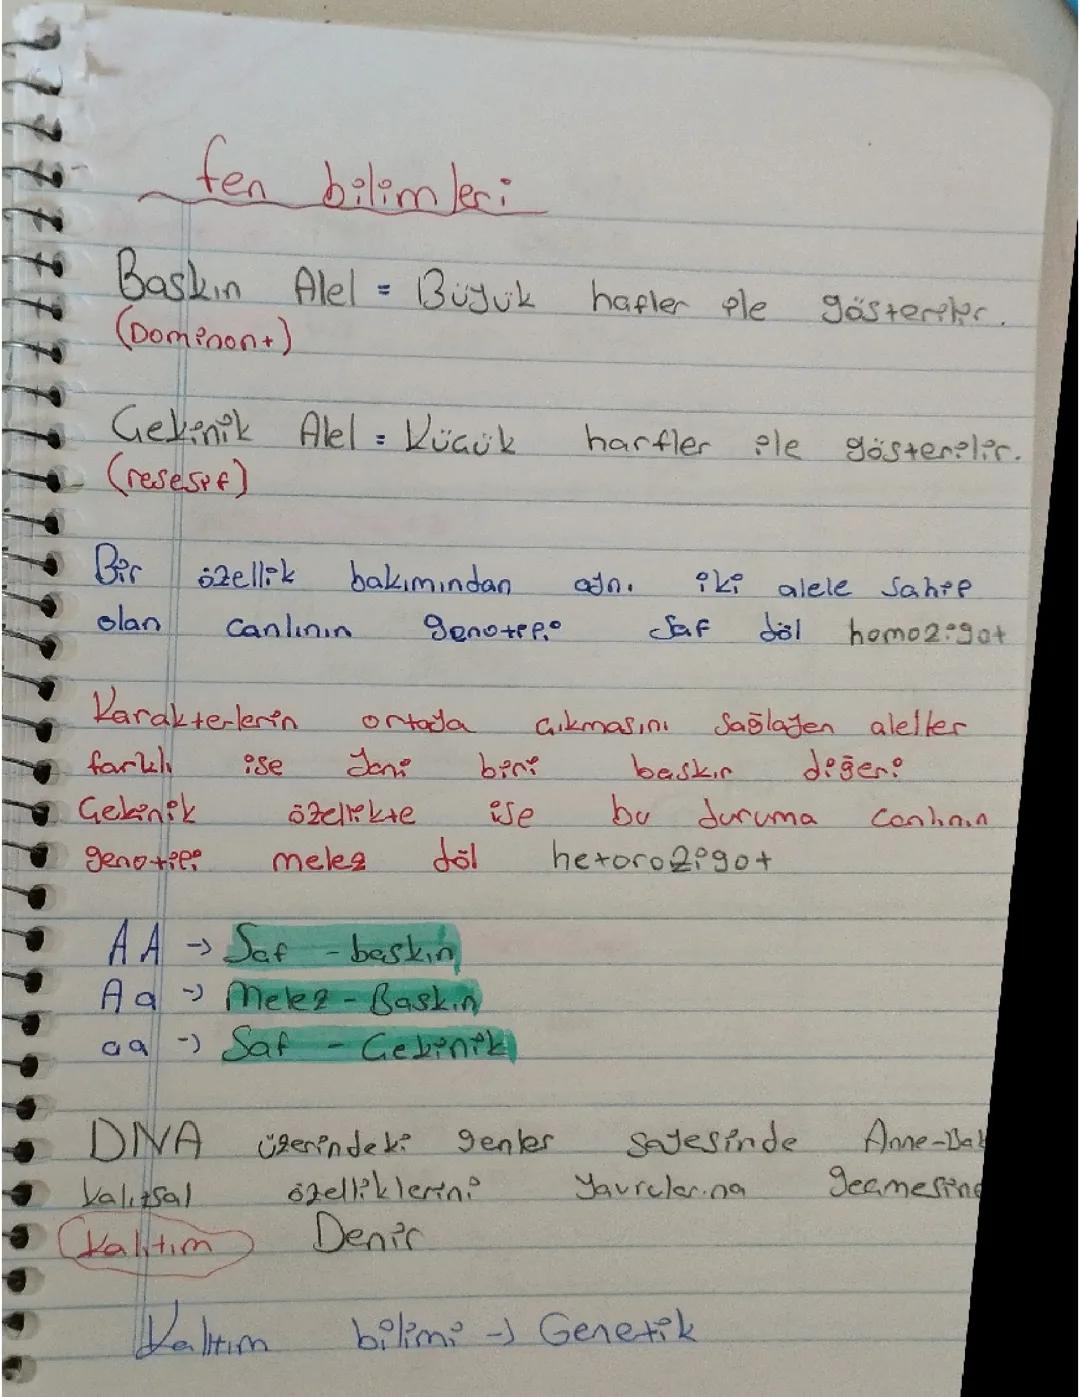 fen bilimleri
Baskın Alel = Büyük hafler ile gösterilir.
(Dominant)
Çekinik Alel = Küçük harfler ile gösterilir.
(resesif)
Bir özellik bakımından aynı iki alele sahip
olan canlının genotipi saf döl homozigot
Karakterlerin ortada çıkmasını sağlayen aleller
farklı ise yani biri baskın diğeri
Çekinik özellikte ise bu duruma canlının
genotipi melez döl hetorozigot
AA → Saf - baskın
Aa → Melez - Baskın
aa → Saf - Çekinik
DNA üzerindeki genler sayesinde Anne-Bab
kalıtsal özelliklerini yavrularına geçmesine
Kalıtım Denir
Kalıtım bilimi → Genetik